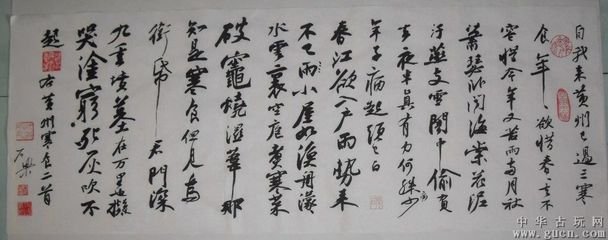 自我来黄州已過三寒
食年々欲惜春々去不
容惜今年又苦雨兩月秋
蕭瑟卧聞海棠花泥
汙燕支雪闇中偷負
去夜半真有力何殊少
年子病起頭已白
春江欲入户雨勢来
不已雨小屋如漁舟濛
水雲裏空庖煮寒菜
破竈燒濕葦那
知是寒食但見烏
銜帋君門深
九重墳墓在万里也擬
哭塗窮死灰吹不
起 右黄州寒食二首
中华古玩网
www.gucn.com